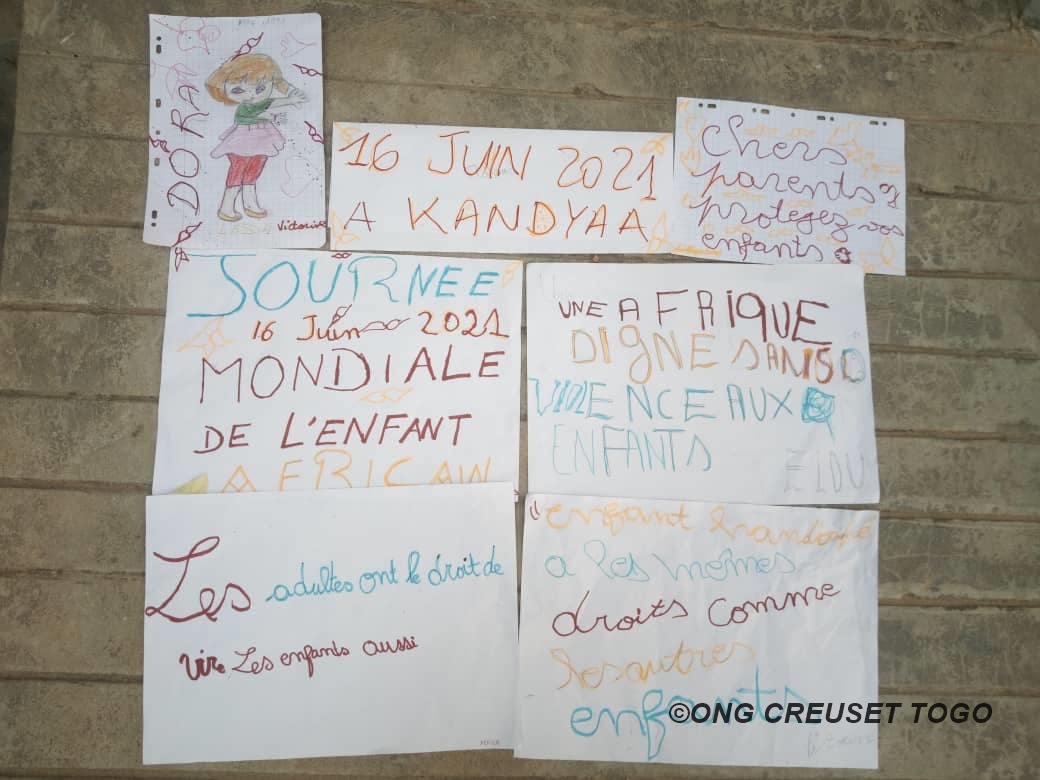 DORA
Victorine
16 JUIN 2021
A KANDYAA
Chers
parents
protégez vos
enfants
JOURNEE
16 Juin 2021
MONDIALE
DE L'ENFANT
AFRICAIN
UNE AFRIQUE
DIGNE SANS
VIOLENCE AUX
ENFANTS
Les adultes ont le droit de
vivre Les enfants aussi
enfant handicapé
a les mêmes
droits comme
les autres
enfants
©ONG CREUSET TOGO